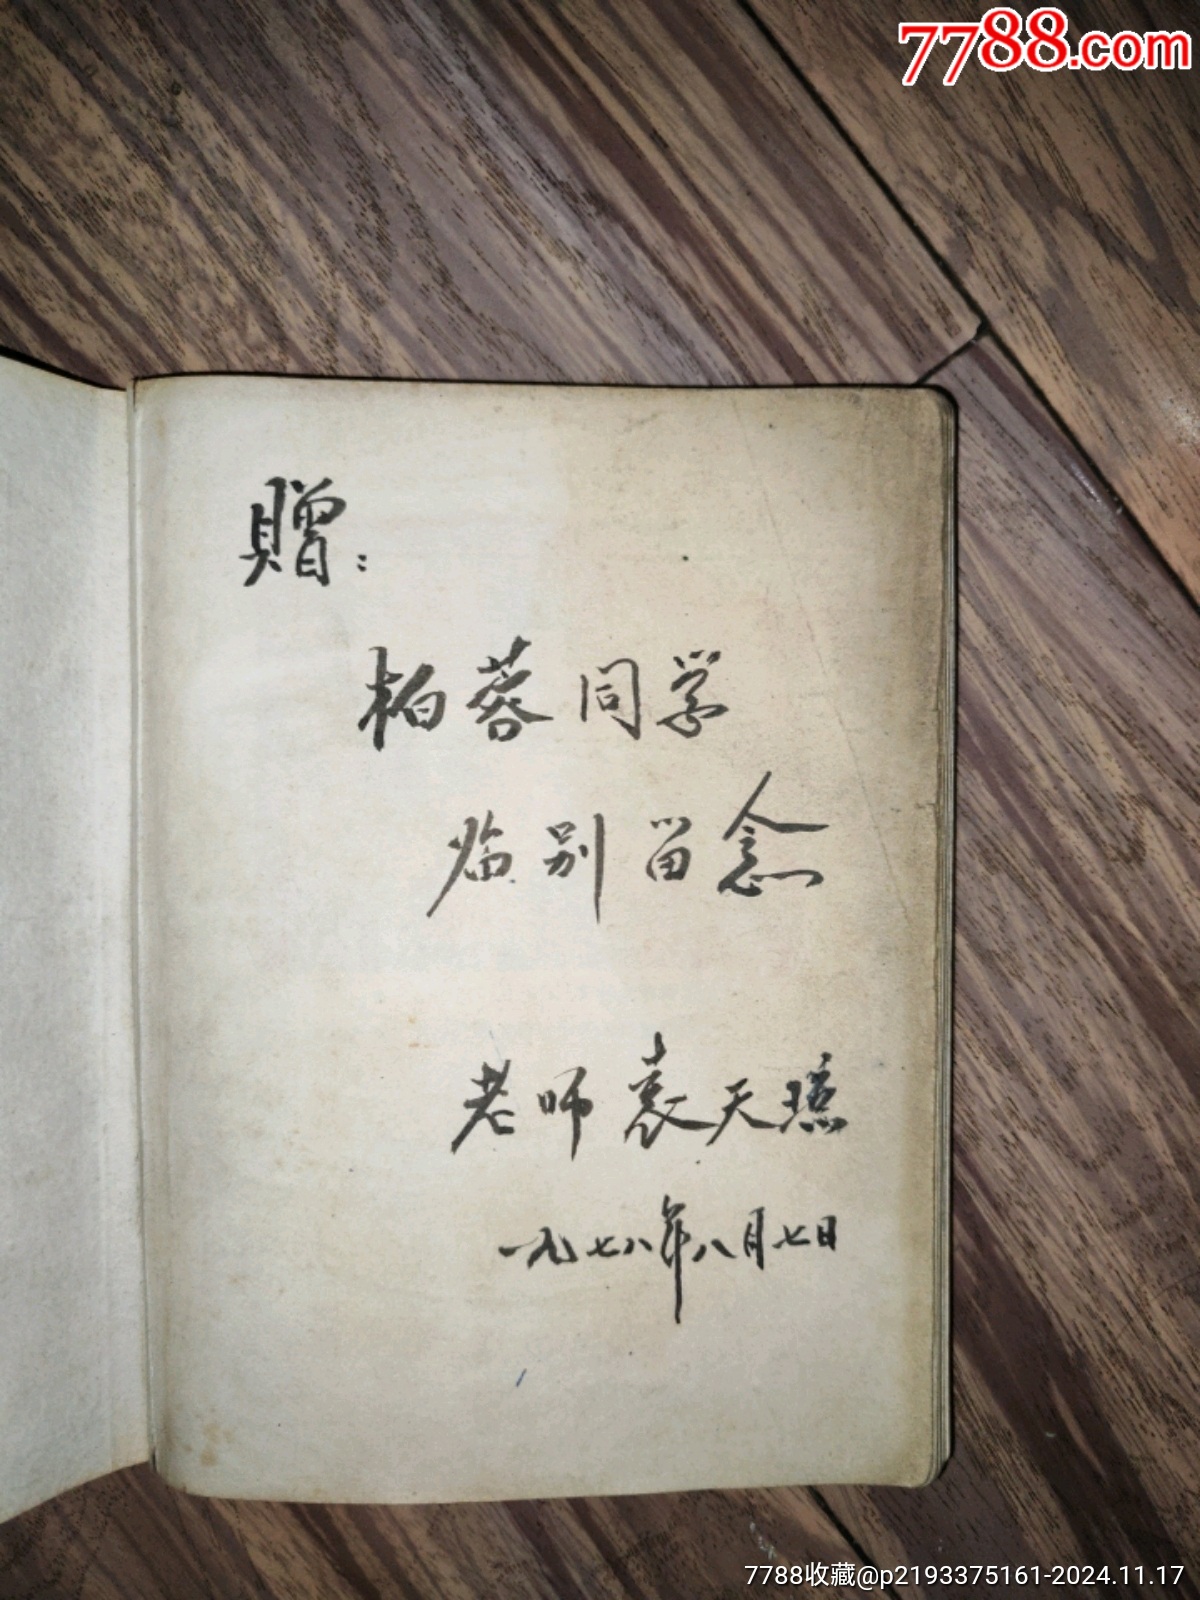 7788.com
贈：
柏蓉同学
临别留念
老师袁天
一九七八年八月七日
7788收藏@p2193375161-2024.11.17